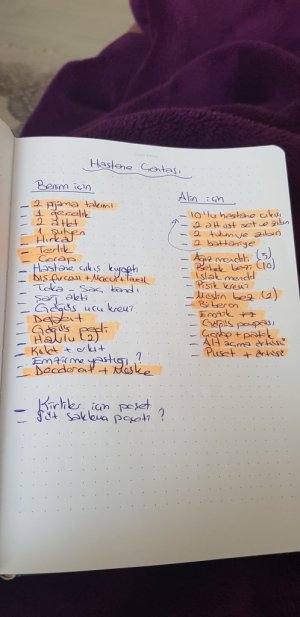 Hastane Çantası
Benim için
- 2 pijama takımı
- 1 gecelik
- 2 atlet
- 1 sütyen
- Hırka
- Terlik
- Çorap
- Hastane çıkış kıyafeti
- Diş fırçası + Macun +
- Toka - Saç bandı
- Saç aleti
- Göğüs ucu kremi
- Göğüs pedi
- Havlu (2)
- Külot +
- Emzirme yastığı ?
- Deodorant + Maske
- Kirliler için poşet
- Süt saklama poşeti ?
için
- 10'lu hastane çıkışı
- 2 alt üst set ve
- 2 tulum ve
- 2 battaniye
- Ağız mendili (3)
- Bebek bezi (10)
- Islak mendil
- Pişik kremi
- Müslin bez (2)
- Biberon
- Emzik
- Göğüs pompası
- Çorap + patik
- Alt açma örtüsü
- Puset + Örtüsü